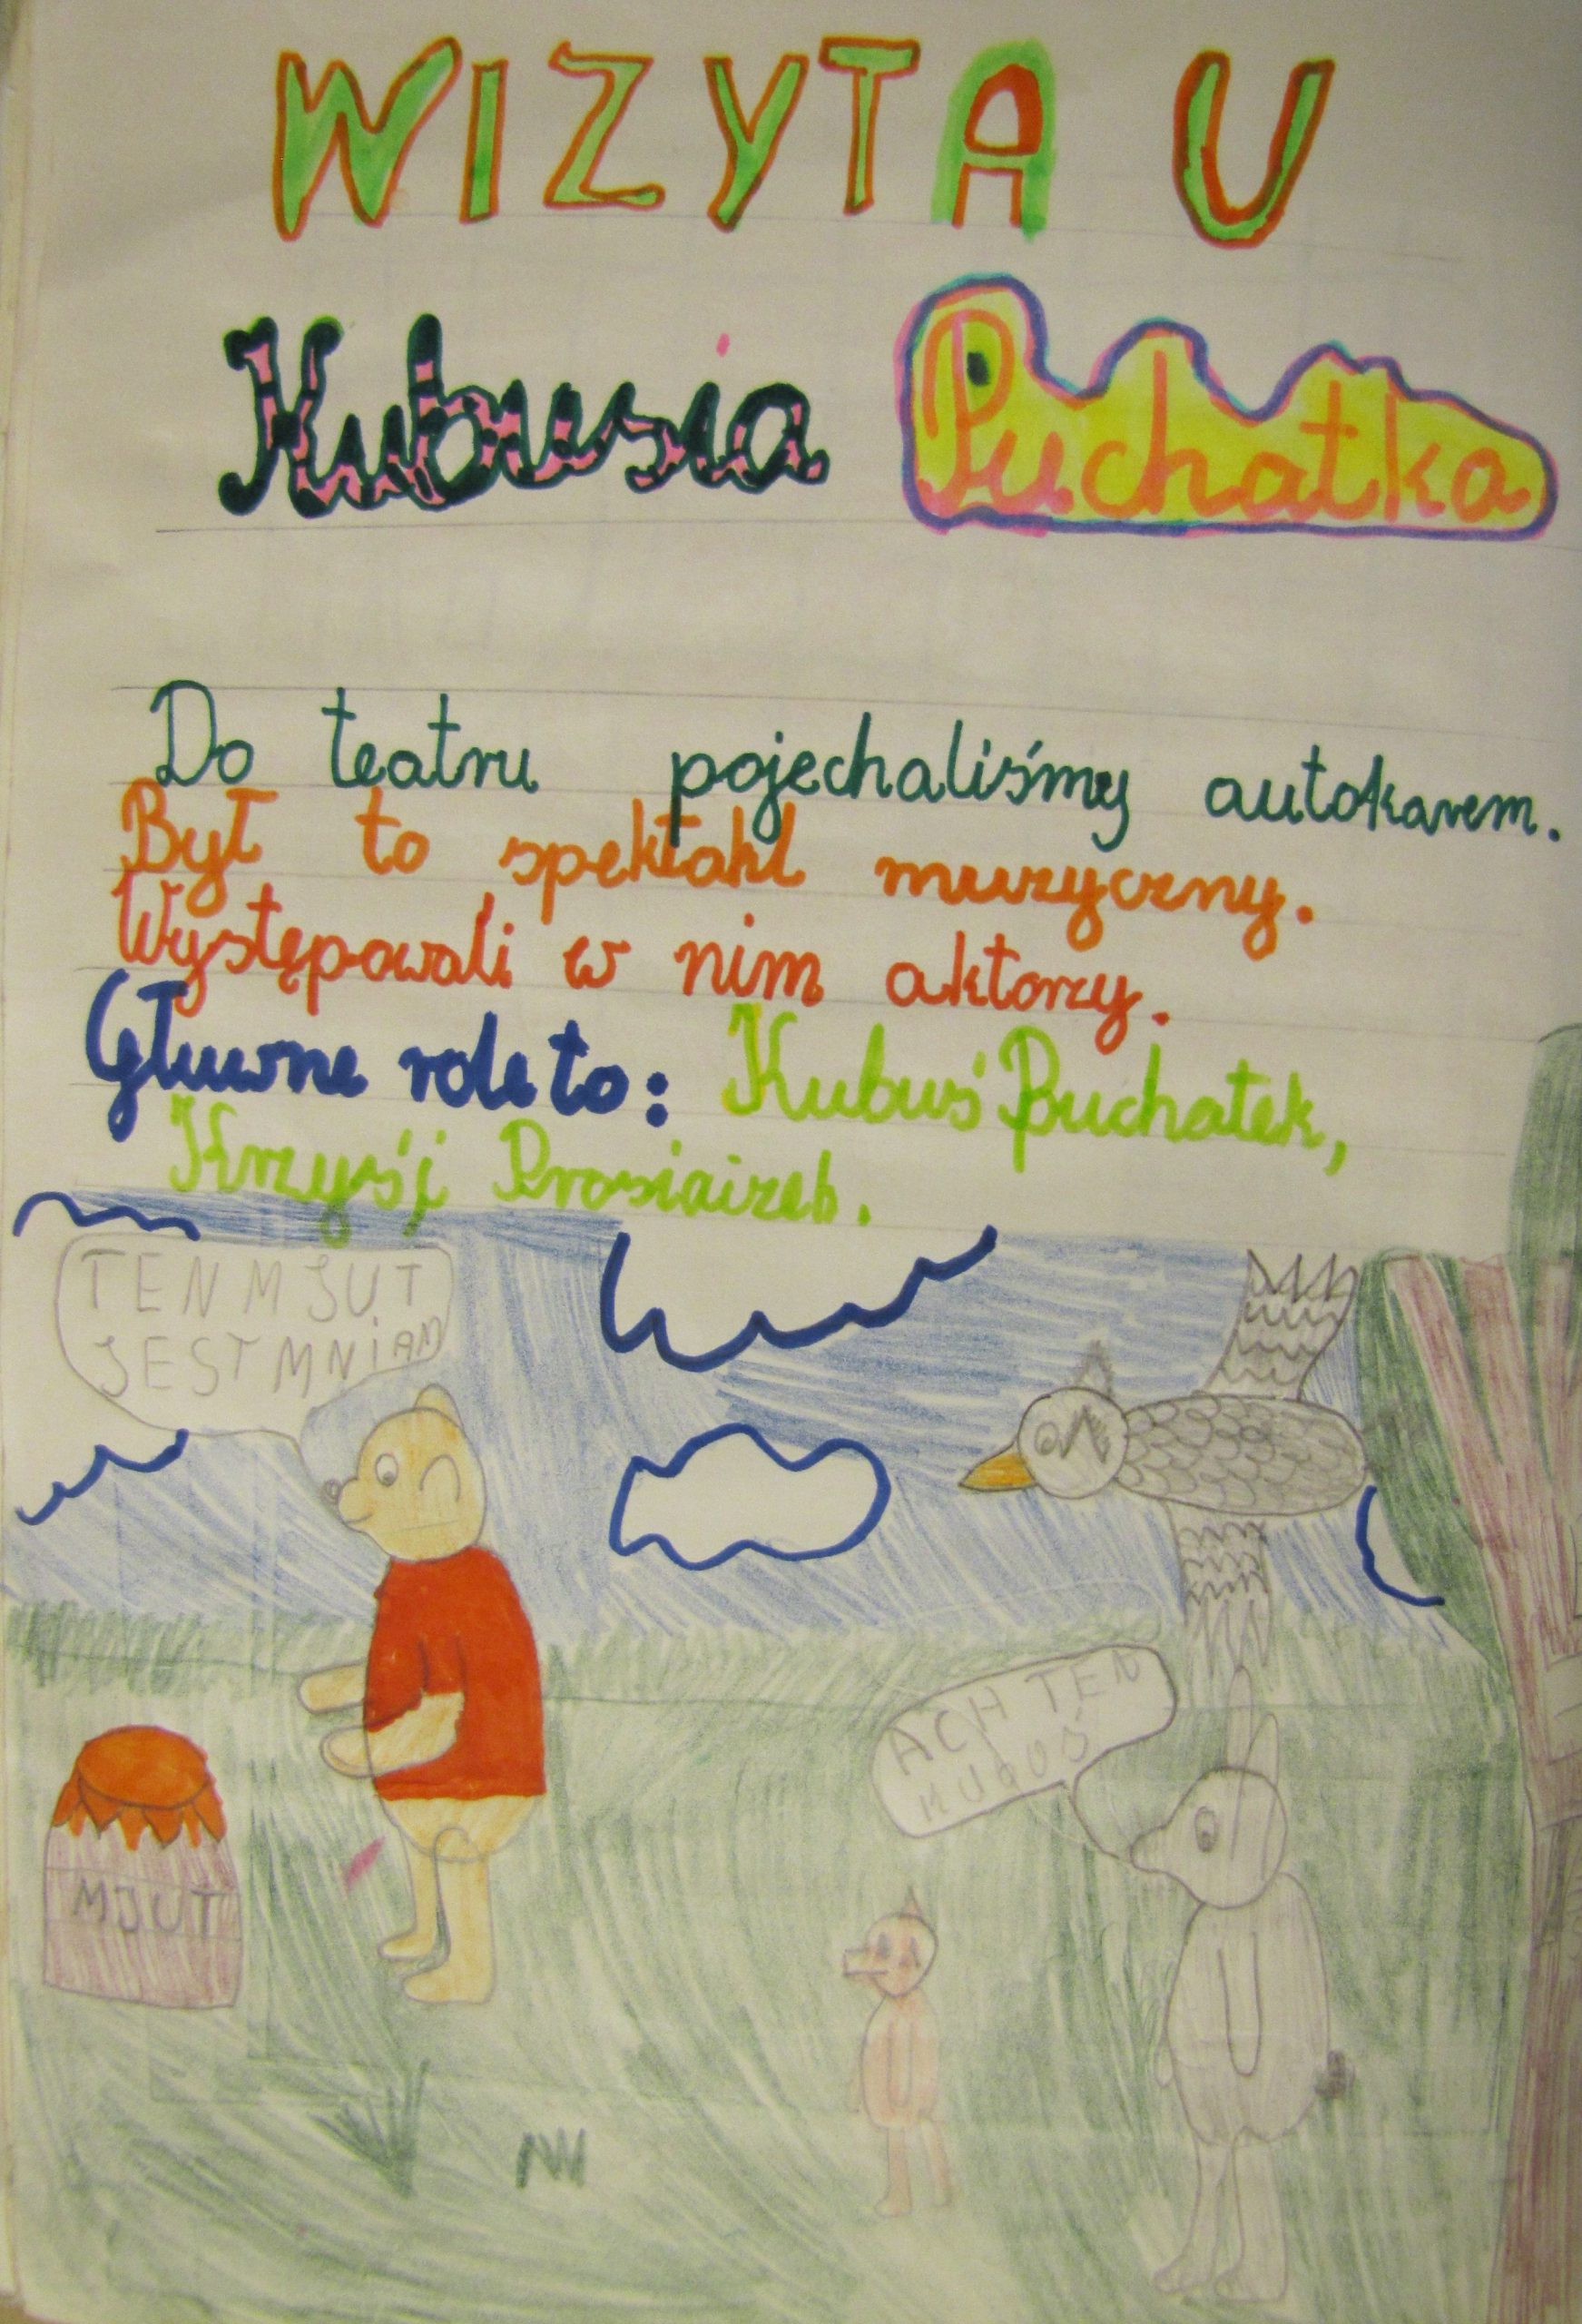 WIZYTA U
Kubusia Puchatka
Do teatru pojechaliśmy autokarem.
Był to spektakl muzyczny.
Występowali w nim aktorzy.
Głuwne role to: Kubuś Puchatek,
Krzyś i
TEN MJUT
JEST MNiAM
ACH TEN
MJUT